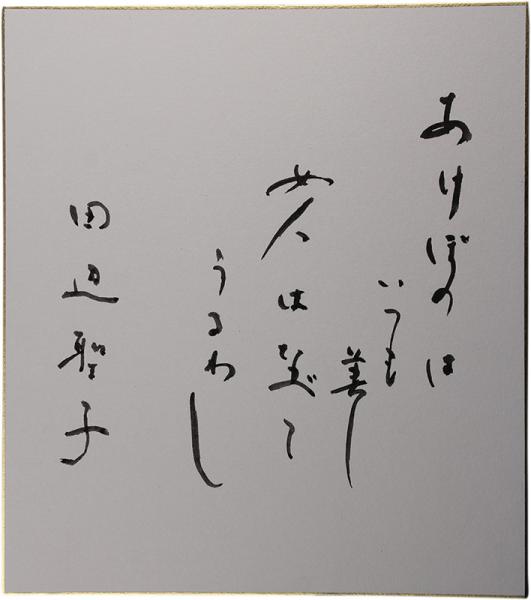 あけぼのは
いつも
美し
女人はすべて
うるわし
田辺聖子